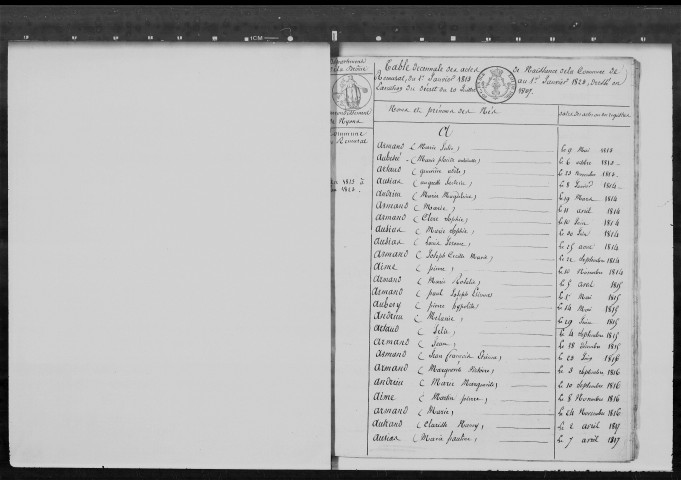 1CM
Département
de la Drôme
Arrondissement
de Nyons
Commune
Remuzat
1813 à
1823
Table Decennale des actes de Naissance de la Commune de
Remuzat, du 1er Janvier 1813 au 1er Janvier 1823, Dressé en
Execution du Décret du 20 Juillet 1807.
Noms et prénoms des Nés
dates des actes ou des registres
A
Armand (Marie Julie) le 9 Mai 1813
Aubert (Marie le 6 octobre 1813
Artaud ( le 23 Novembre 1813
Autran (auguste le 8 1814
Andrieu (Marie Magdeleine) le 19 Mars 1814
Armand (Marie) le 11 avril 1814
Armand (Clere Sophie) le 10 Juin 1814
(Marie Sophie) le 20 1814
(Louis le 25 aout 1814
Armand (Joseph Marie) le 12 Septembre 1814
Aime (pierre) le 10 Novembre 1814
Armand (Marie Rosalie) le 5 avril 1815
Armand (paul Joseph Etienne) le 5 Mai 1815
Aubery (pierre hypolite) le 14 Mai 1815
Andrieu (Melanie) le 29 Juin 1815
Artaud (Felix) le 4 Septembre 1815
Armand (Jean) le 18 Décembre 1815
Armand (Jean françois le 22 1816
Armand (Marguerite Victoire) le 3 Septembre 1816
Andrieu (Marie Marguerite) le 10 Septembre 1816
Aime (Martin pierre) le 8 Novembre 1816
Armand (Marie) le 24 Novembre 1816
Autrand (Clarisse le 2 avril 1817
(Marie pauline) le 7 avril 1817